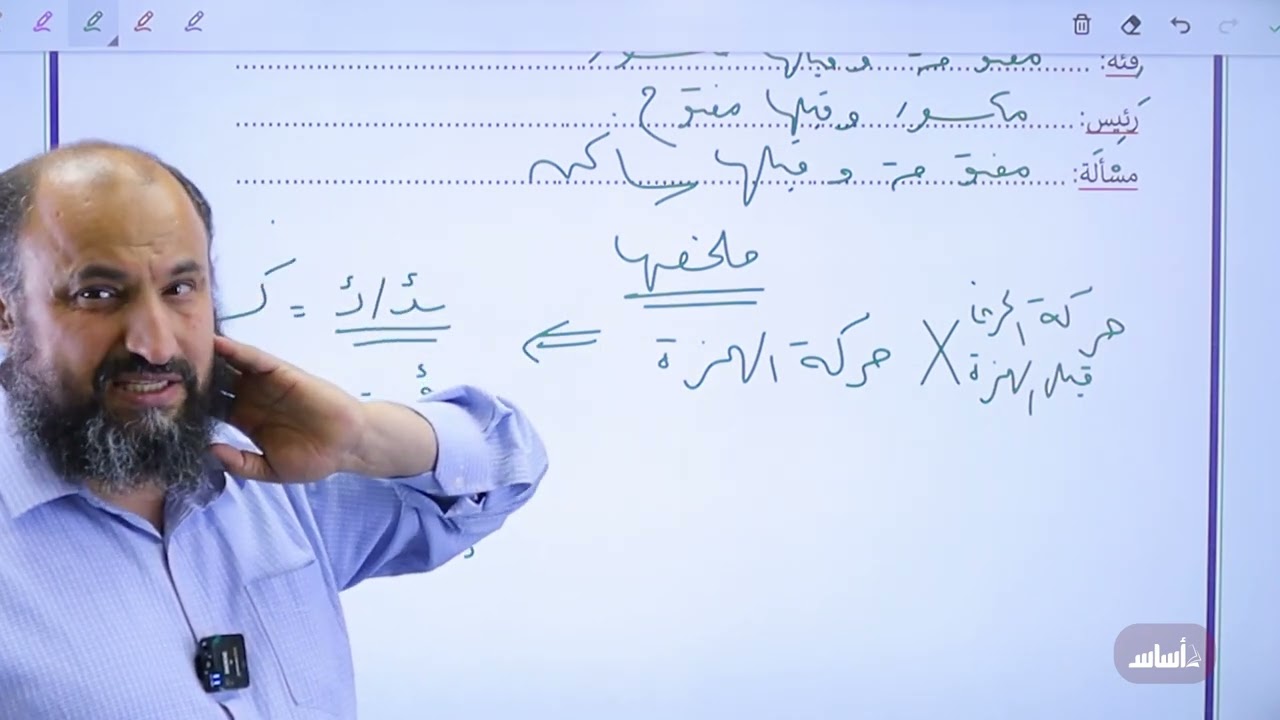 فِئَة: مفتوحة وقبلها مكسور
رَئِيس: مكسورة وقبلها مفتوح.
مسْأَلَة: مفتوحة وقبلها ساكن
ملخصها
حركة الحرف قبل الهمزة X حركة الهمزة ⇐ ـئـ/ئـ =
أساس